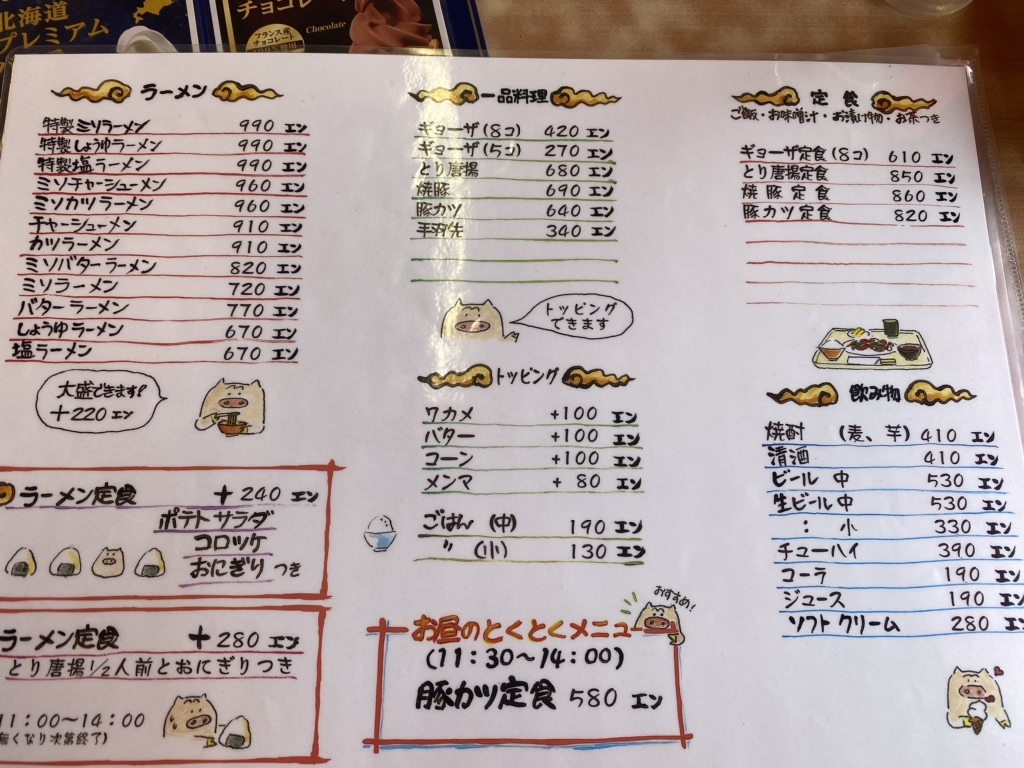 北海道
プレミアム
チョコレート
Chocolate
フランス産
チョコレート
ラーメン
特製ミソラーメン 990 エン
特製しょうゆラーメン 990 エン
特製塩ラーメン 990 エン
ミソチャーシューメン 960 エン
ミソカツラーメン 960 エン
チャーシューメン 910 エン
カツラーメン 910 エン
ミソバターラーメン 820 エン
ミソラーメン 720 エン
バターラーメン 770 エン
しょうゆラーメン 670 エン
塩ラーメン 670 エン
大盛できます!
+220エン
ラーメン定食 +240 エン
ポテトサラダ
コロッケ
おにぎりつき
ラーメン定食 +280 エン
とり唐揚1/2人前とおにぎりつき
11:00〜14:00
無くなり次第終了)
一品料理
ギョーザ(8コ) 420 エン
ギョーザ(5コ) 270 エン
とり唐揚 680 エン
焼豚 690 エン
豚カツ 640 エン
手羽先 340 エン
トッピング
できます
トッピング
ワカメ +100 エン
バター +100 エン
コーン +100 エン
メンマ +80 エン
ごはん (中) 190 エン
〃 (小) 130 エン
おすすめ!
お昼のとくとくメニュー
(11:30〜14:00)
豚カツ定食 580 エン
定食
ご飯・お味噌汁・お漬け物・お茶つき
ギョーザ定食(8コ) 610 エン
とり唐揚定食 850 エン
焼豚定食 860 エン
豚カツ定食 820 エン
飲み物
焼酎 (麦、芋) 410 エン
清酒 410 エン
ビール 中 530 エン
生ビール中 530 エン
: 小 330 エン
チューハイ 390 エン
コーラ 190 エン
ジュース 190 エン
ソフトクリーム 280 エン